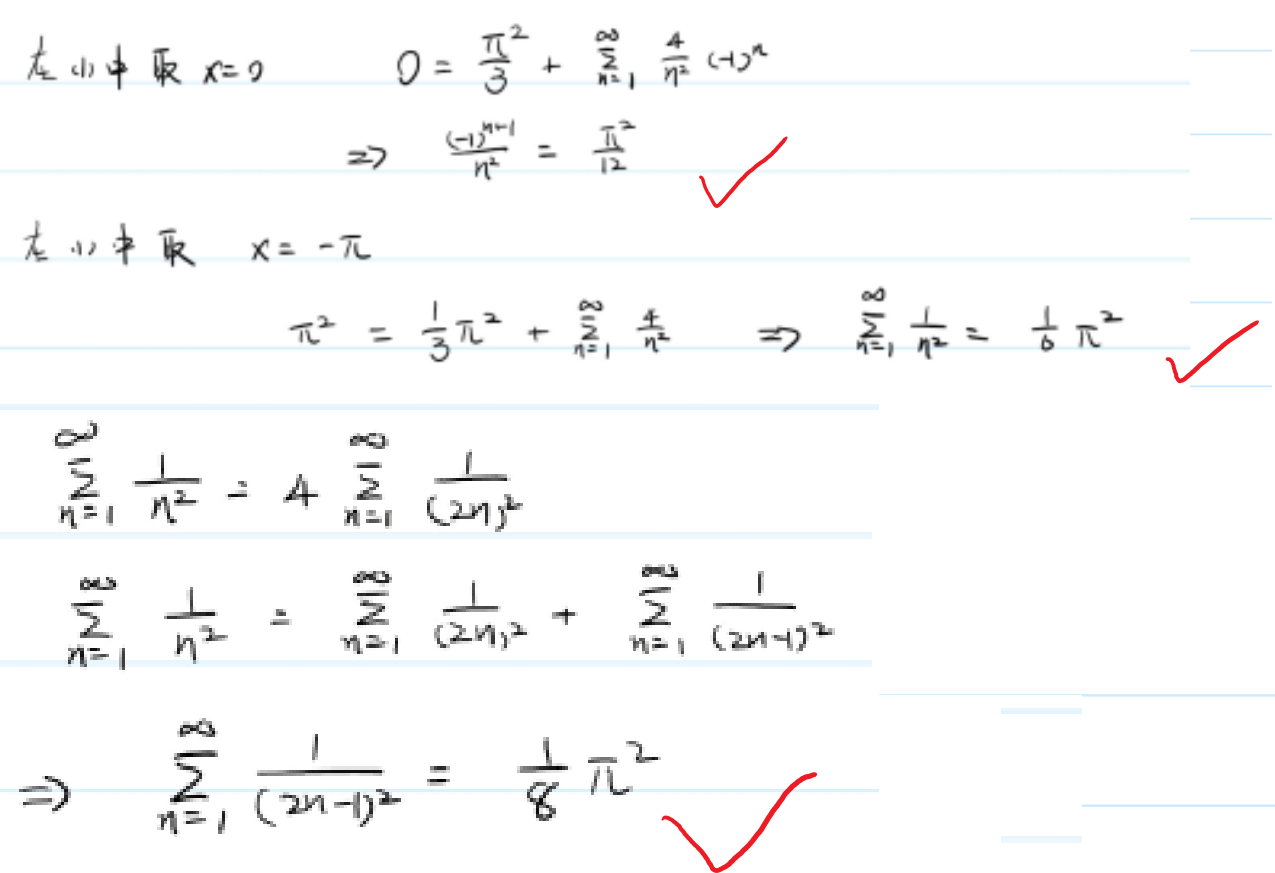 在(1)中取 x=0 0 = π²/3 + ∑_{n=1}^{∞} 4/n² (-1)ⁿ
⇒ (-1)ⁿ⁺¹/n² = π²/12
在(1)中取 x = -π
π² = 1/3 π² + ∑_{n=1}^{∞} 4/n² ⇒ ∑_{n=1}^{∞} 1/n² = 1/6 π²
∑_{n=1}^{∞} 1/n² = 4 ∑_{n=1}^{∞} 1/(2n)²
∑_{n=1}^{∞} 1/n² = ∑_{n=1}^{∞} 1/(2n)² + ∑_{n=1}^{∞} 1/(2n-1)²
⇒ ∑_{n=1}^{∞} 1/(2n-1)² = 1/8 π²